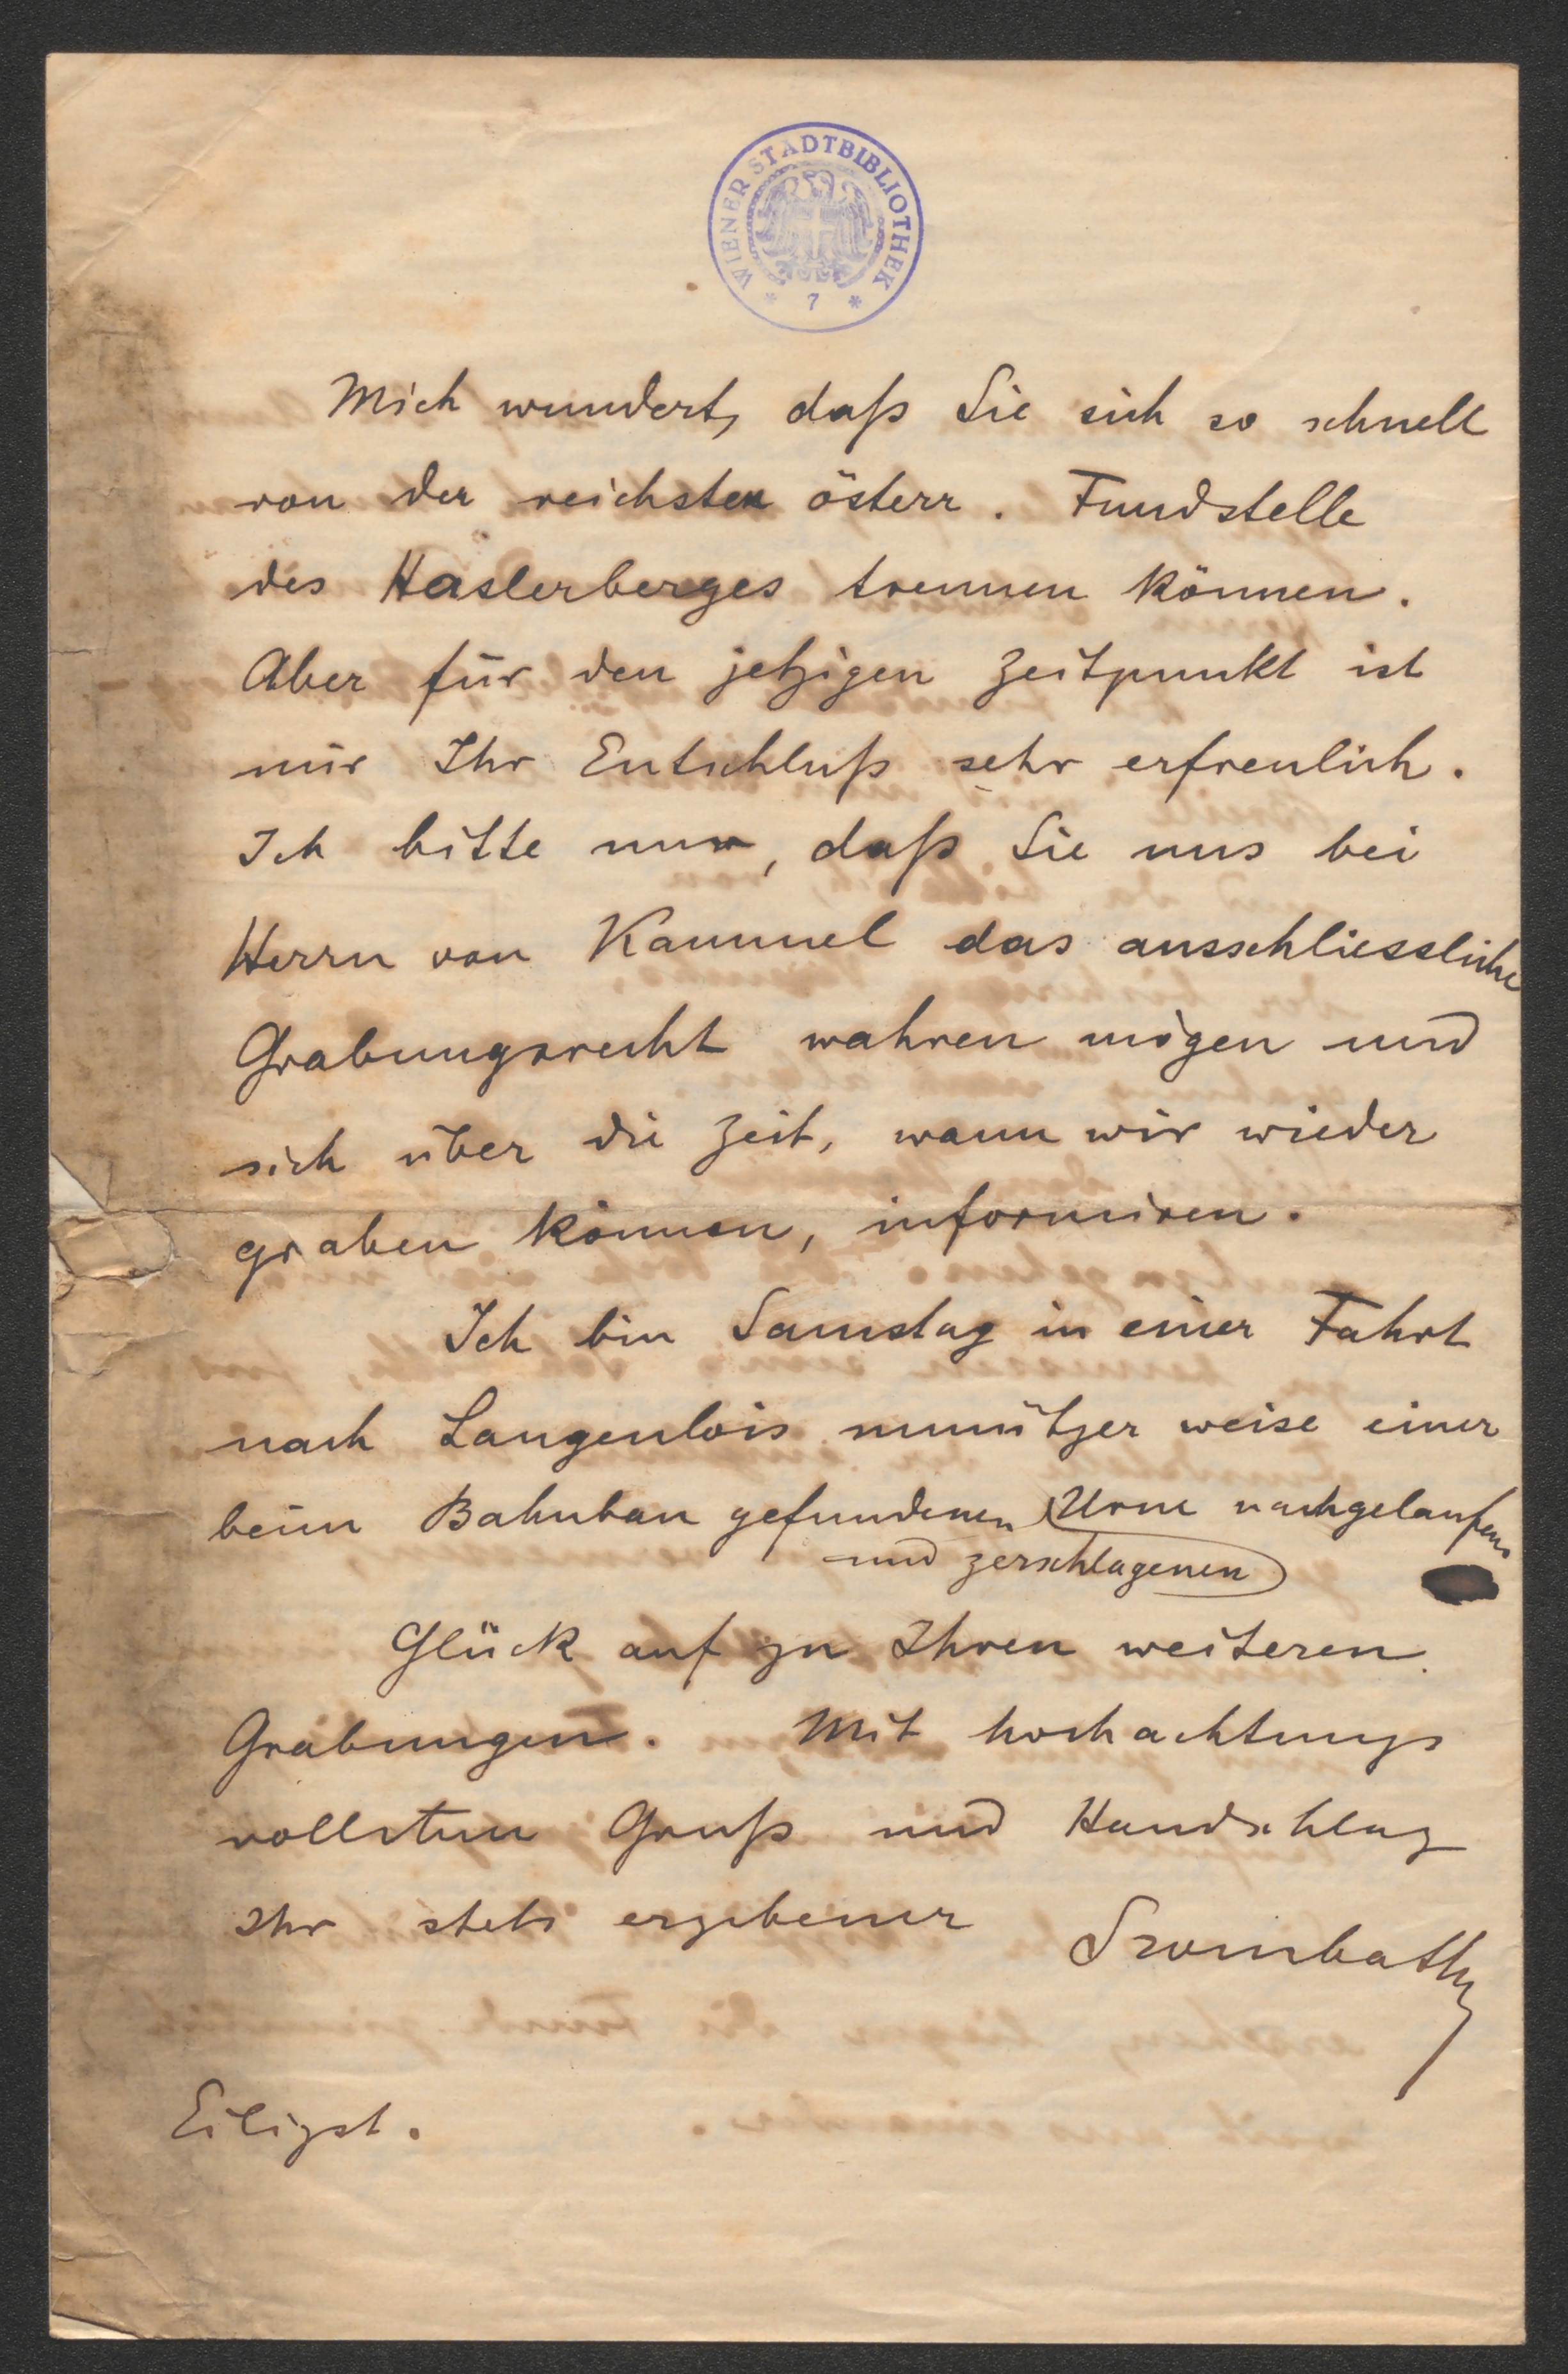 WIENER STADTBIBLIOTHEK
* 7 *
Mich wundert, daß Sie sich so schnell
von der reichsten österr. Fundstelle
des Haslerberges trennen können.
Aber für den jetzigen Zeitpunkt ist
mir Ihr Entschluß sehr erfreulich.
Ich bitte nur, daß Sie uns bei
Herrn von Kammel das ausschliessliche
Grabungsrecht wahren mögen und
sich über die Zeit, wann wir wieder
graben können, informiren.
Ich bin Samstag in einer Fahrt
nach Langenlois unnützer weise einer
beim Bahnbau gefundenen Urne nachgelaufen.
und zerschlagenen
Glück auf zu Ihren weiteren
Grabungen. Mit hochachtungs
vollstem Gruß und Handschlag
Ihr stets ergebener Szombathy
Eiligst.